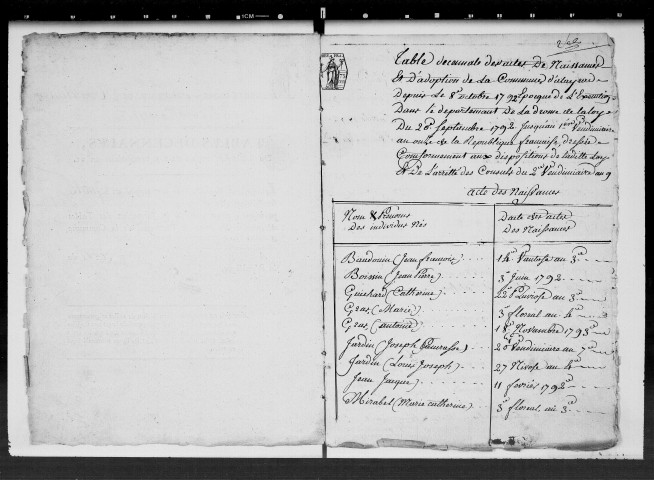 Table decennale des actes De Naissances
Et D'adoption de La Commune d'aleyrac
Depuis Le 8e octobre 1792 Epoque de L'Execution
Dans le departement De La drome de la loy
Du 20e Septembre 1792 Jusqu'au 1er Vendimiaire
au onze de la Republique francaise, dressée
Conformement aux dispositions de ladite Loy
Et De L'arretté des Consuls du 2e Vendimiaire an 9
acte des Naissances
Nom & Prenoms
Des individus Nés
Darte des actes
Des Naissances
Baudouin (Jean françois) 14e Vantose an 3e
Boissin (Jean Pierre) 3e Juin 1792
Guichard (Catherine) 22e Pluviose an 3e
Gras (Marie) 3e floreal an 4e
Gras (antoine) 18e Novembre 1793
Jardin (Joseph) 20e Vendimiaire an 7e
Jardin (Louis Joseph) 27 Nivose an 4e
Jean Jacque 11 fevrié 1792
Mirabel (Marie catherine) 3e floreal an 3e